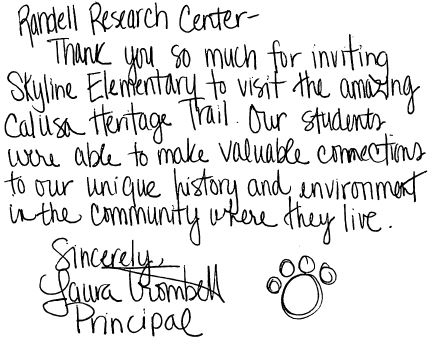 Randell Research Center-
Thank you so much for inviting
Skyline Elementary to visit the amazing
Calusa Heritage Trail. Our students
were able to make valuable connections
to our unique history and environment
in the community where they live.
Sincerely,
Laura Trombell
Principal